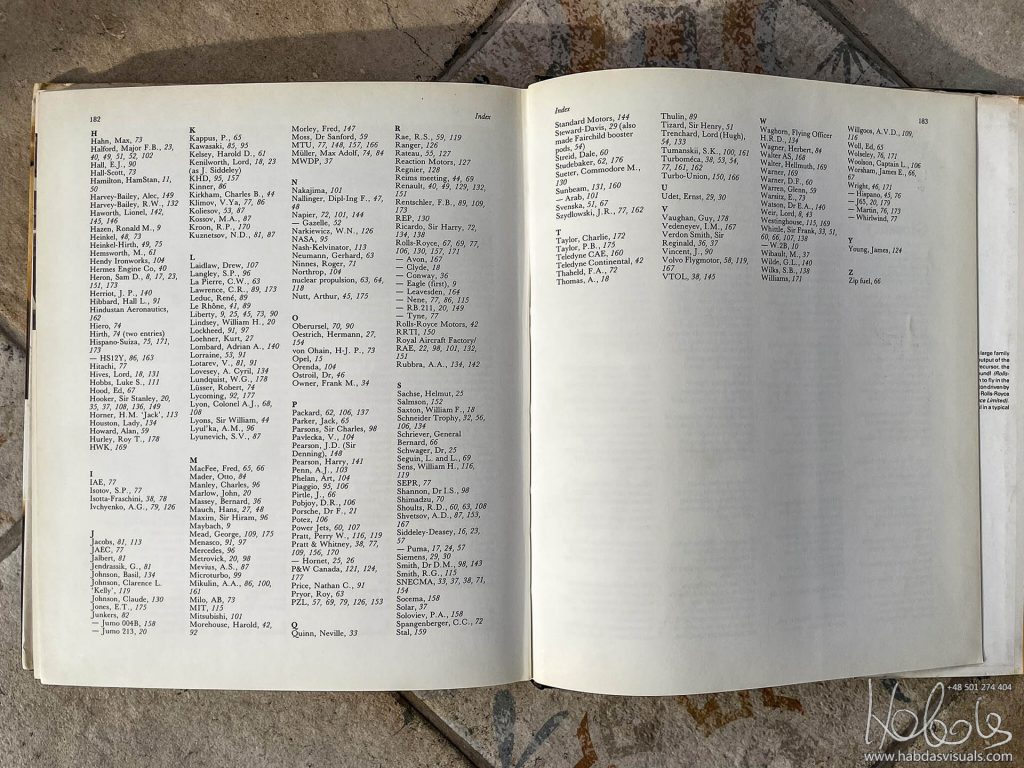 182
Index
H
Hahn, Max, 73
Halford, Major F.B., 23,
40, 49, 51, 52, 102
Hall, E.J., 90
Hall-Scott, 73
Hamilton, HamStan, 11,
50
Harvey-Bailey, Alec, 149
Harvey-Bailey, R.W., 132
Haworth, Lionel, 142,
145, 146
Hazen, Ronald M., 9
Heinkel, 48, 73
Heinkel-Hirth, 49, 75
Hemsworth, M., 61
Hendy Ironworks, 104
Hermes Engine Co, 40
Heron, Sam D., 8, 17, 23,
151, 173
Herriot, J.P., 140
Hibbard, Hall L., 91
Hindustan Aeronautics,
162
Hiero, 74
Hirth, 74 (two entries)
Hispano-Suiza, 75, 171,
173
— HS12Y, 86, 163
Hitachi, 77
Hives, Lord, 18, 131
Hobbs, Luke S., 111
Hood, Ed, 67
Hooker, Sir Stanley, 20,
35, 37, 108, 136, 149
Horner, H.M. 'Jack', 113
Houston, Lady, 134
Howard, Alan, 59
Hurley, Roy T., 178
HWK, 169
I
IAE, 77
Isotov, S.P., 77
Isotta-Fraschini, 38, 78
Ivchyenko, A.G., 79, 126
J
Jacobs, 81, 113
JAEC, 77
Jalbert, 81
Jendrassik, G., 81
Johnson, Basil, 134
Johnson, Clarence L.
'Kelly', 119
Johnson, Claude, 130
Jones, E.T., 175
Junkers, 82
— Jumo 004B, 158
— Jumo 213, 20
K
Kappus, P., 65
Kawasaki, 85, 95
Kelsey, Harold D., 61
Kenilworth, Lord, 18, 23
(as J. Siddeley)
KHD, 95, 157
Kinner, 86
Kirkham, Charles B., 44
Klimov, V.Ya, 77, 86
Koliesov, 53, 87
Kossov, M.A., 87
Kroon, R.P., 170
Kuznetsov, N.D., 81, 87
L
Laidlaw, Drew, 107
Langley, S.P., 96
La Pierre, C.W., 63
Lawrence, C.R., 89, 173
Leduc, René, 89
Le Rhône, 41, 89
Liberty, 9, 25, 45, 73, 90
Lindsey, William H., 20
Lockheed, 91, 97
Loehner, Kurt, 27
Lombard, Adrian A., 140
Lorraine, 53, 91
Lotarev, V., 81, 91
Lovesey, A. Cyril, 134
Lundquist, W.G., 178
Lüsser, Robert, 74
Lycoming, 92, 177
Lyon, Colonel A.J., 68,
108
Lyons, Sir William, 44
Lyul'ka, A.M., 96
Lyunevich, S.V., 87
M
MacFee, Fred, 65, 66
Mader, Otto, 84
Manley, Charles, 96
Marlow, John, 20
Massey, Bernard, 36
Mauch, Hans, 27, 48
Maxim, Sir Hiram, 96
Maybach, 9
Mead, George, 109, 175
Menasco, 91, 97
Mercedes, 96
Metrovick, 20, 98
Mevius, A.S., 87
Microturbo, 99
Mikulin, A.A., 86, 100,
161
Milo, AB, 73
MIT, 115
Mitsubishi, 101
Morehouse, Harold, 42,
92
Morley, Fred, 147
Moss, Dr Sanford, 59
MTU, 77, 148, 157, 166
Müller, Max Adolf, 74, 84
MWDP, 37
N
Nakajima, 101
Nallinger, Dipl-Ing F., 47,
48
Napier, 72, 101, 144
— Gazelle, 52
Narkiewicz, W.N., 126
NASA, 95
Nash-Kelvinator, 113
Neumann, Gerhard, 63
Ninnes, Roger, 71
Northrop, 104
nuclear propulsion, 63, 64,
118
Nutt, Arthur, 45, 175
O
Oberursel, 70, 90
Oestrich, Hermann, 27,
154
von Ohain, H-J. P., 73
Opel, 15
Orenda, 104
Ostroil, Dr, 46
Owner, Frank M., 34
P
Packard, 62, 106, 137
Parker, Jack, 65
Parsons, Sir Charles, 98
Pavlecka, V., 104
Pearson, J.D. (Sir
Denning), 148
Pearson, Harry, 141
Penn, A.J., 103
Phelan, Art, 104
Piaggio, 95, 106
Pirtle, J., 66
Pobjoy, D.R., 106
Porsche, Dr F., 21
Potez, 106
Power Jets, 60, 107
Pratt, Perry W., 116, 119
Pratt & Whitney, 38, 77,
109, 156, 170
— Hornet, 25, 26
P&W Canada, 121, 124,
177
Price, Nathan C., 91
Pryor, Roy, 63
PZL, 57, 69, 79, 126, 153
Q
Quinn, Neville, 33
R
Rae, R.S., 59, 119
Ranger, 126
Rateau, 55, 127
Reaction Motors, 127
Regnier, 128
Reims meeting, 44, 69
Renault, 40, 49, 129, 132,
151
Rentschler, F.B., 89, 109,
173
REP, 130
Ricardo, Sir Harry, 72,
134, 138
Rolls-Royce, 67, 69, 77,
106, 130, 157, 171
— Avon, 167
— Clyde, 18
— Conway, 36
— Eagle (first), 9
— Leavesden, 164
— Nene, 77, 86, 115
— RB.211, 20, 149
— Tyne, 77
Rolls-Royce Motors, 42
RRTI, 150
Royal Aircraft Factory/
RAE, 22, 98, 101, 132,
151
Rubbra, A.A., 134, 142
S
Sachse, Helmut, 25
Salmson, 152
Saxton, William F., 18
Schneider Trophy, 32, 56,
106, 134
Schriever, General
Bernard, 66
Schwager, Dr, 25
Seguin, L. and L., 69
Sens, William H., 116,
119
SEPR, 77
Shannon, Dr I.S., 98
Shimadzu, 70
Shoults, R.D., 60, 63, 108
Shvetsov, A.D., 87, 153,
167
Siddeley-Deasey, 16, 23,
57
— Puma, 17, 24, 57
Siemens, 29, 30
Smith, Dr D.M., 98, 143
Smith, R.G., 115
SNECMA, 33, 37, 38, 71,
154
Socema, 158
Solar, 37
Soloviev, P.A., 158
Spangenberger, C.C., 72
Stal, 159
Index
183
Standard Motors, 144
Steward-Davis, 29 (also
made Fairchild booster
pods, 54)
Streid, Dale, 60
Studebaker, 62, 176
Sueter, Commodore M.,
130
Sunbeam, 131, 160
— Arab, 101
Svenska, 51, 67
Szydlowski, J.R., 77, 162
T
Taylor, Charlie, 172
Taylor, P.B., 175
Teledyne CAE, 160
Teledyne Continental, 42
Thaheld, F.A., 72
Thomas, A., 18
Thulin, 89
Tizard, Sir Henry, 51
Trenchard, Lord (Hugh),
54, 133
Tumanskii, S.K., 100, 161
Turboméca, 38, 53, 54,
77, 161, 162
Turbo-Union, 150, 166
U
Udet, Ernst, 29, 30
V
Vaughan, Guy, 178
Vedeneyev, I.M., 167
Verdon Smith, Sir
Reginald, 36, 37
Vincent, J., 90
Volvo Flygmotor, 58, 119,
167
VTOL, 38, 145
W
Waghorn, Flying Officer
H.R.D., 134
Wagner, Herbert, 84
Walter AS, 168
Walter, Hellmuth, 169
Warner, 169
Warner, D.F., 60
Warren, Glenn, 59
Warsitz, E., 73
Watson, Dr E.A., 140
Weir, Lord, 8, 43
Westinghouse, 115, 169
Whittle, Sir Frank, 33, 51,
60, 66, 107, 138
— W.2B, 10
Wibault, M., 37
Wilde, G.L., 140
Wilks, S.B., 138
Williams, 171
Willgoos, A.V.D., 109,
116
Woll, Ed, 65
Wolseley, 76, 171
Woolson, Captain L., 106
Worsham, James E., 66,
67
Wright, 46, 171
— Hispano, 45, 76
— J65, 20, 179
— Martin, 76, 173
— Whirlwind, 77
Y
Young, James, 124
Z
Zip fuel, 66
large family
output of the
recursor, the
ound) (Rolls-
n to fly in the
on driven by
Rolls-Royce
ce Limited).
l in a typical
+48 501 274 404
Habdas
www.habdasvisuals.com